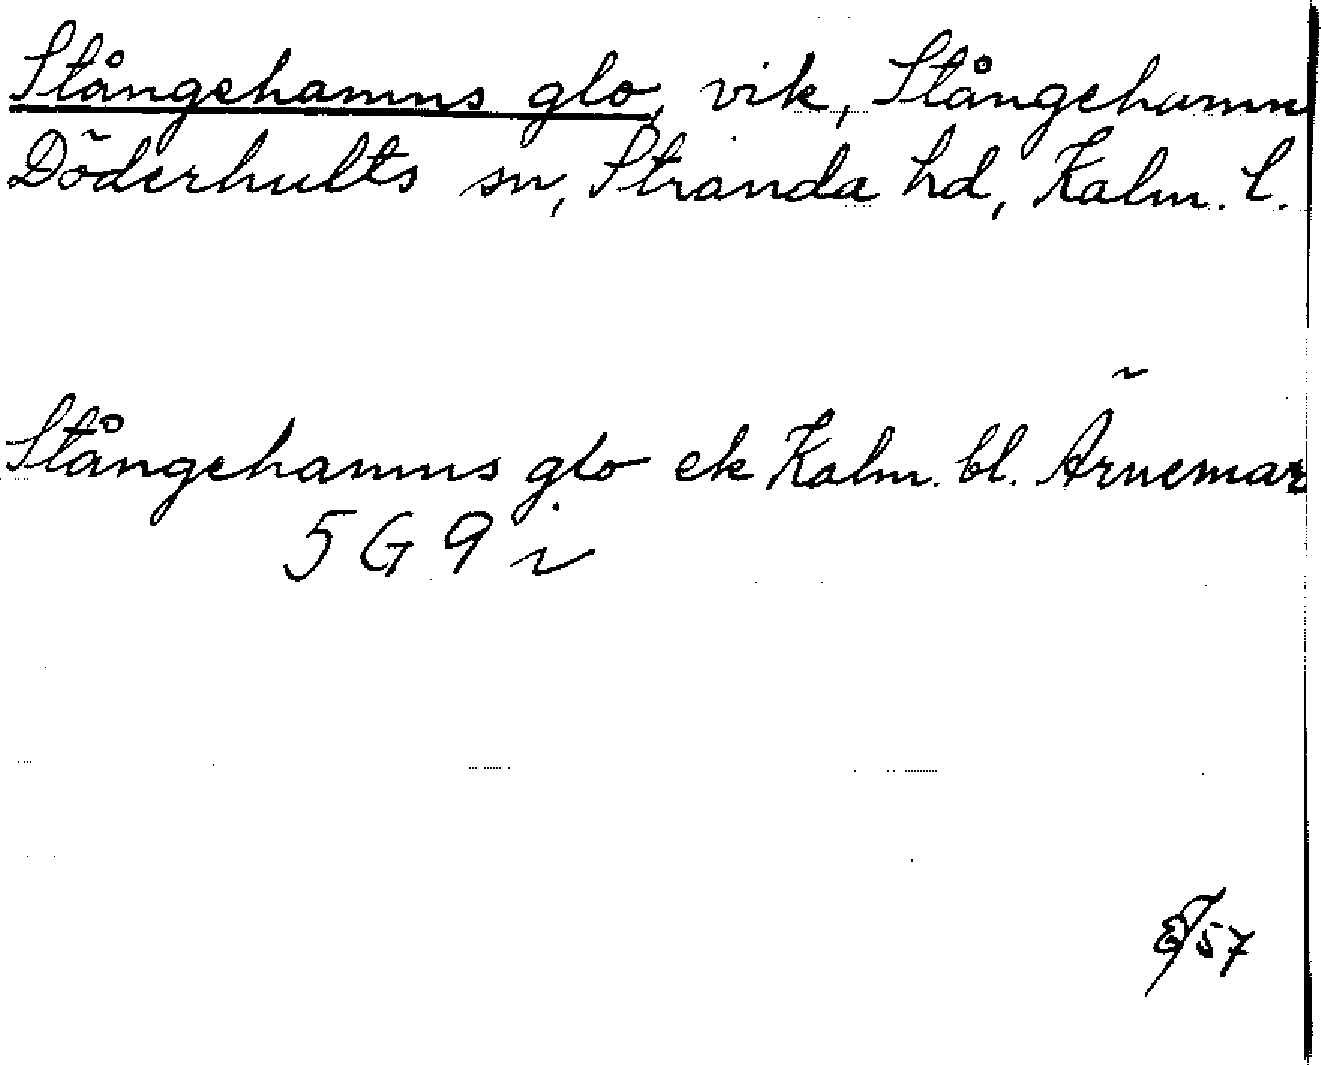 Stångehamns glo, vik, Stångehamn
Döderhults sn, Stranda hd, Kalm. l.
Stångehamns glo ek Kalm. bl. Ärnemar
5 G 9 i
/57